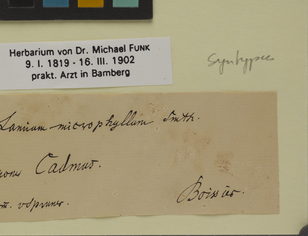 Herbarium von Dr. Michael FUNK
9. I. 1819 - 16. III. 1902
prakt. Arzt in Bamberg
Syntypus
Lamium microphyllum Smth.
Cadmus.
Boissier.